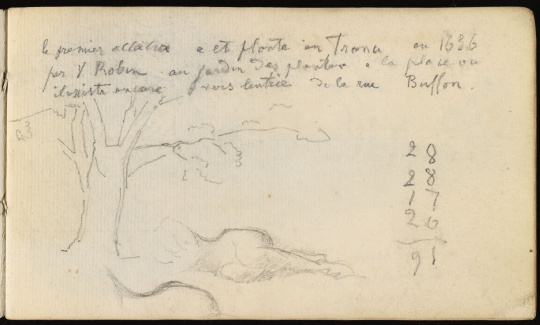 le premier accacia a ete plante en France en 1636
par V Robin au jardin des plantes a la place ou
il existe encore vers lentrée de la rue Buffon.
28
28
17
26
91